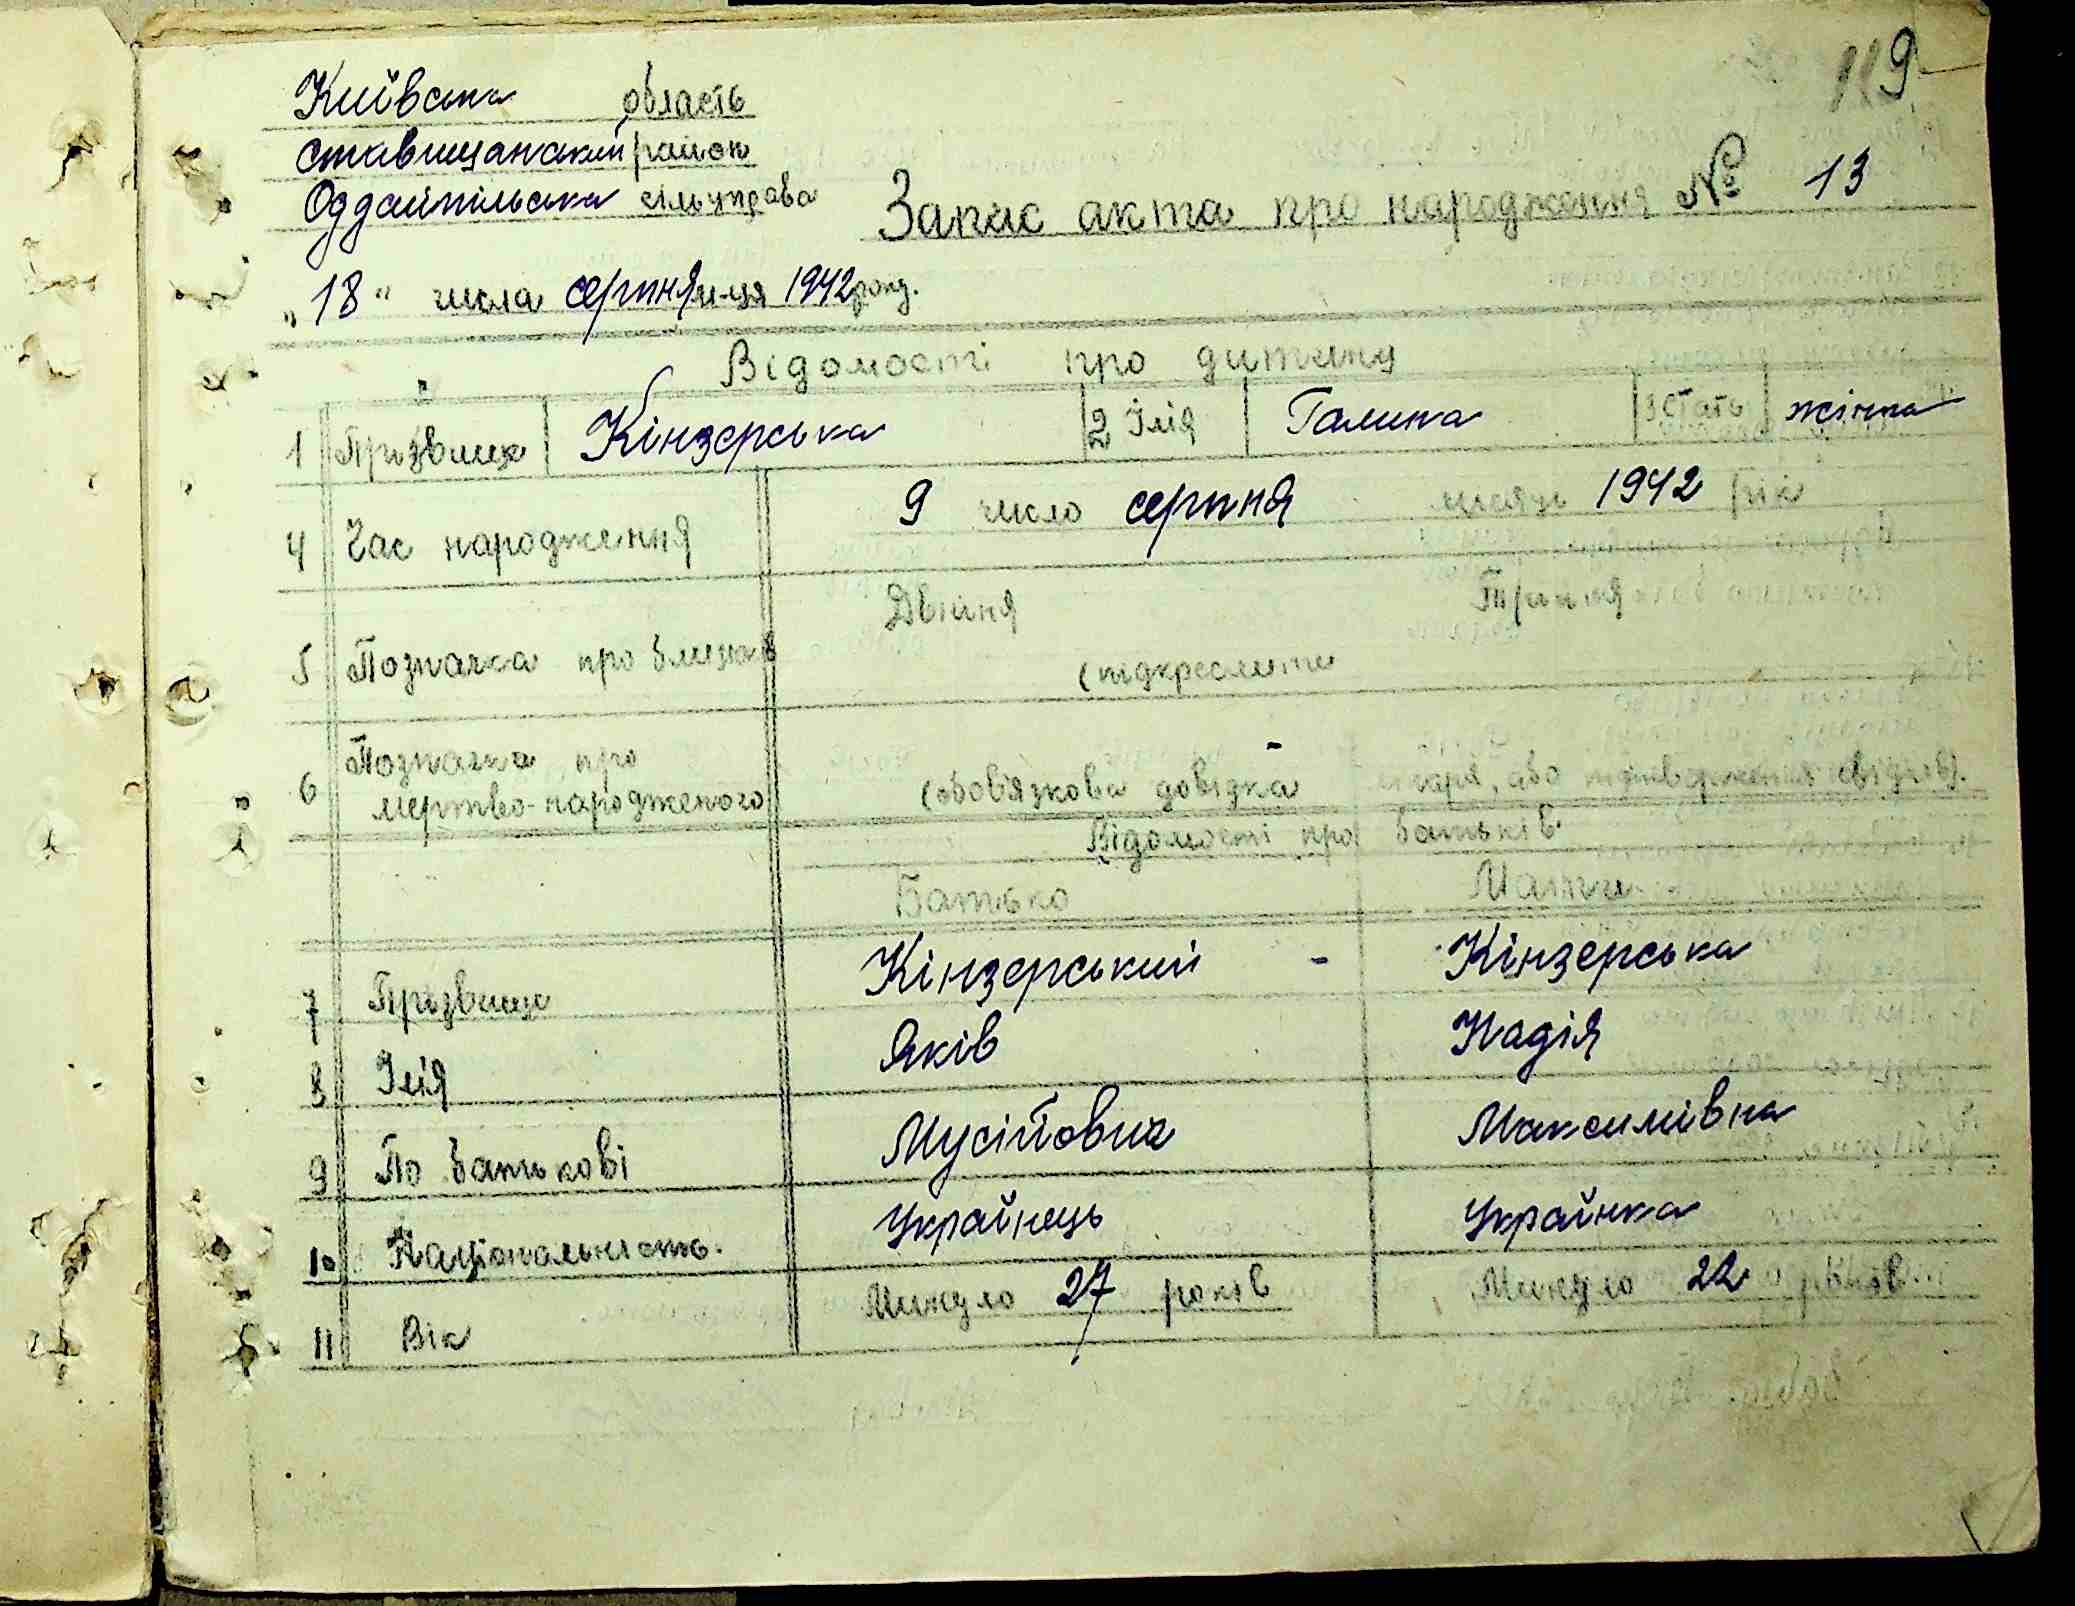 119
Київська область
Ставищанский район
Оддайпільська сільуправа
Запис акта про народження № 13
"18" числа серпня м-ця 1942 року.
Відомості про дитину
1 Прізвище Кінзерська 2 Імя Галина 3 Стать жінка
4 Час народження 9 число серпня місяць 1942 рік
5 Позначка про близнят Двійня Трійня
(підкреслити
6 Позначка про мертво-народженого -
(обов'язкова довідка лікаря, або підтвердження свідків).
Відомості про батьків.
Батько Мати
7 Прізвище Кінзерський - Кінзерська
8 Імя Яків Надія
9 По батькові Мусійович Максимівна
10 Національність. Українець Українка
11 Вік Минуло 27 років Минуло 22 років